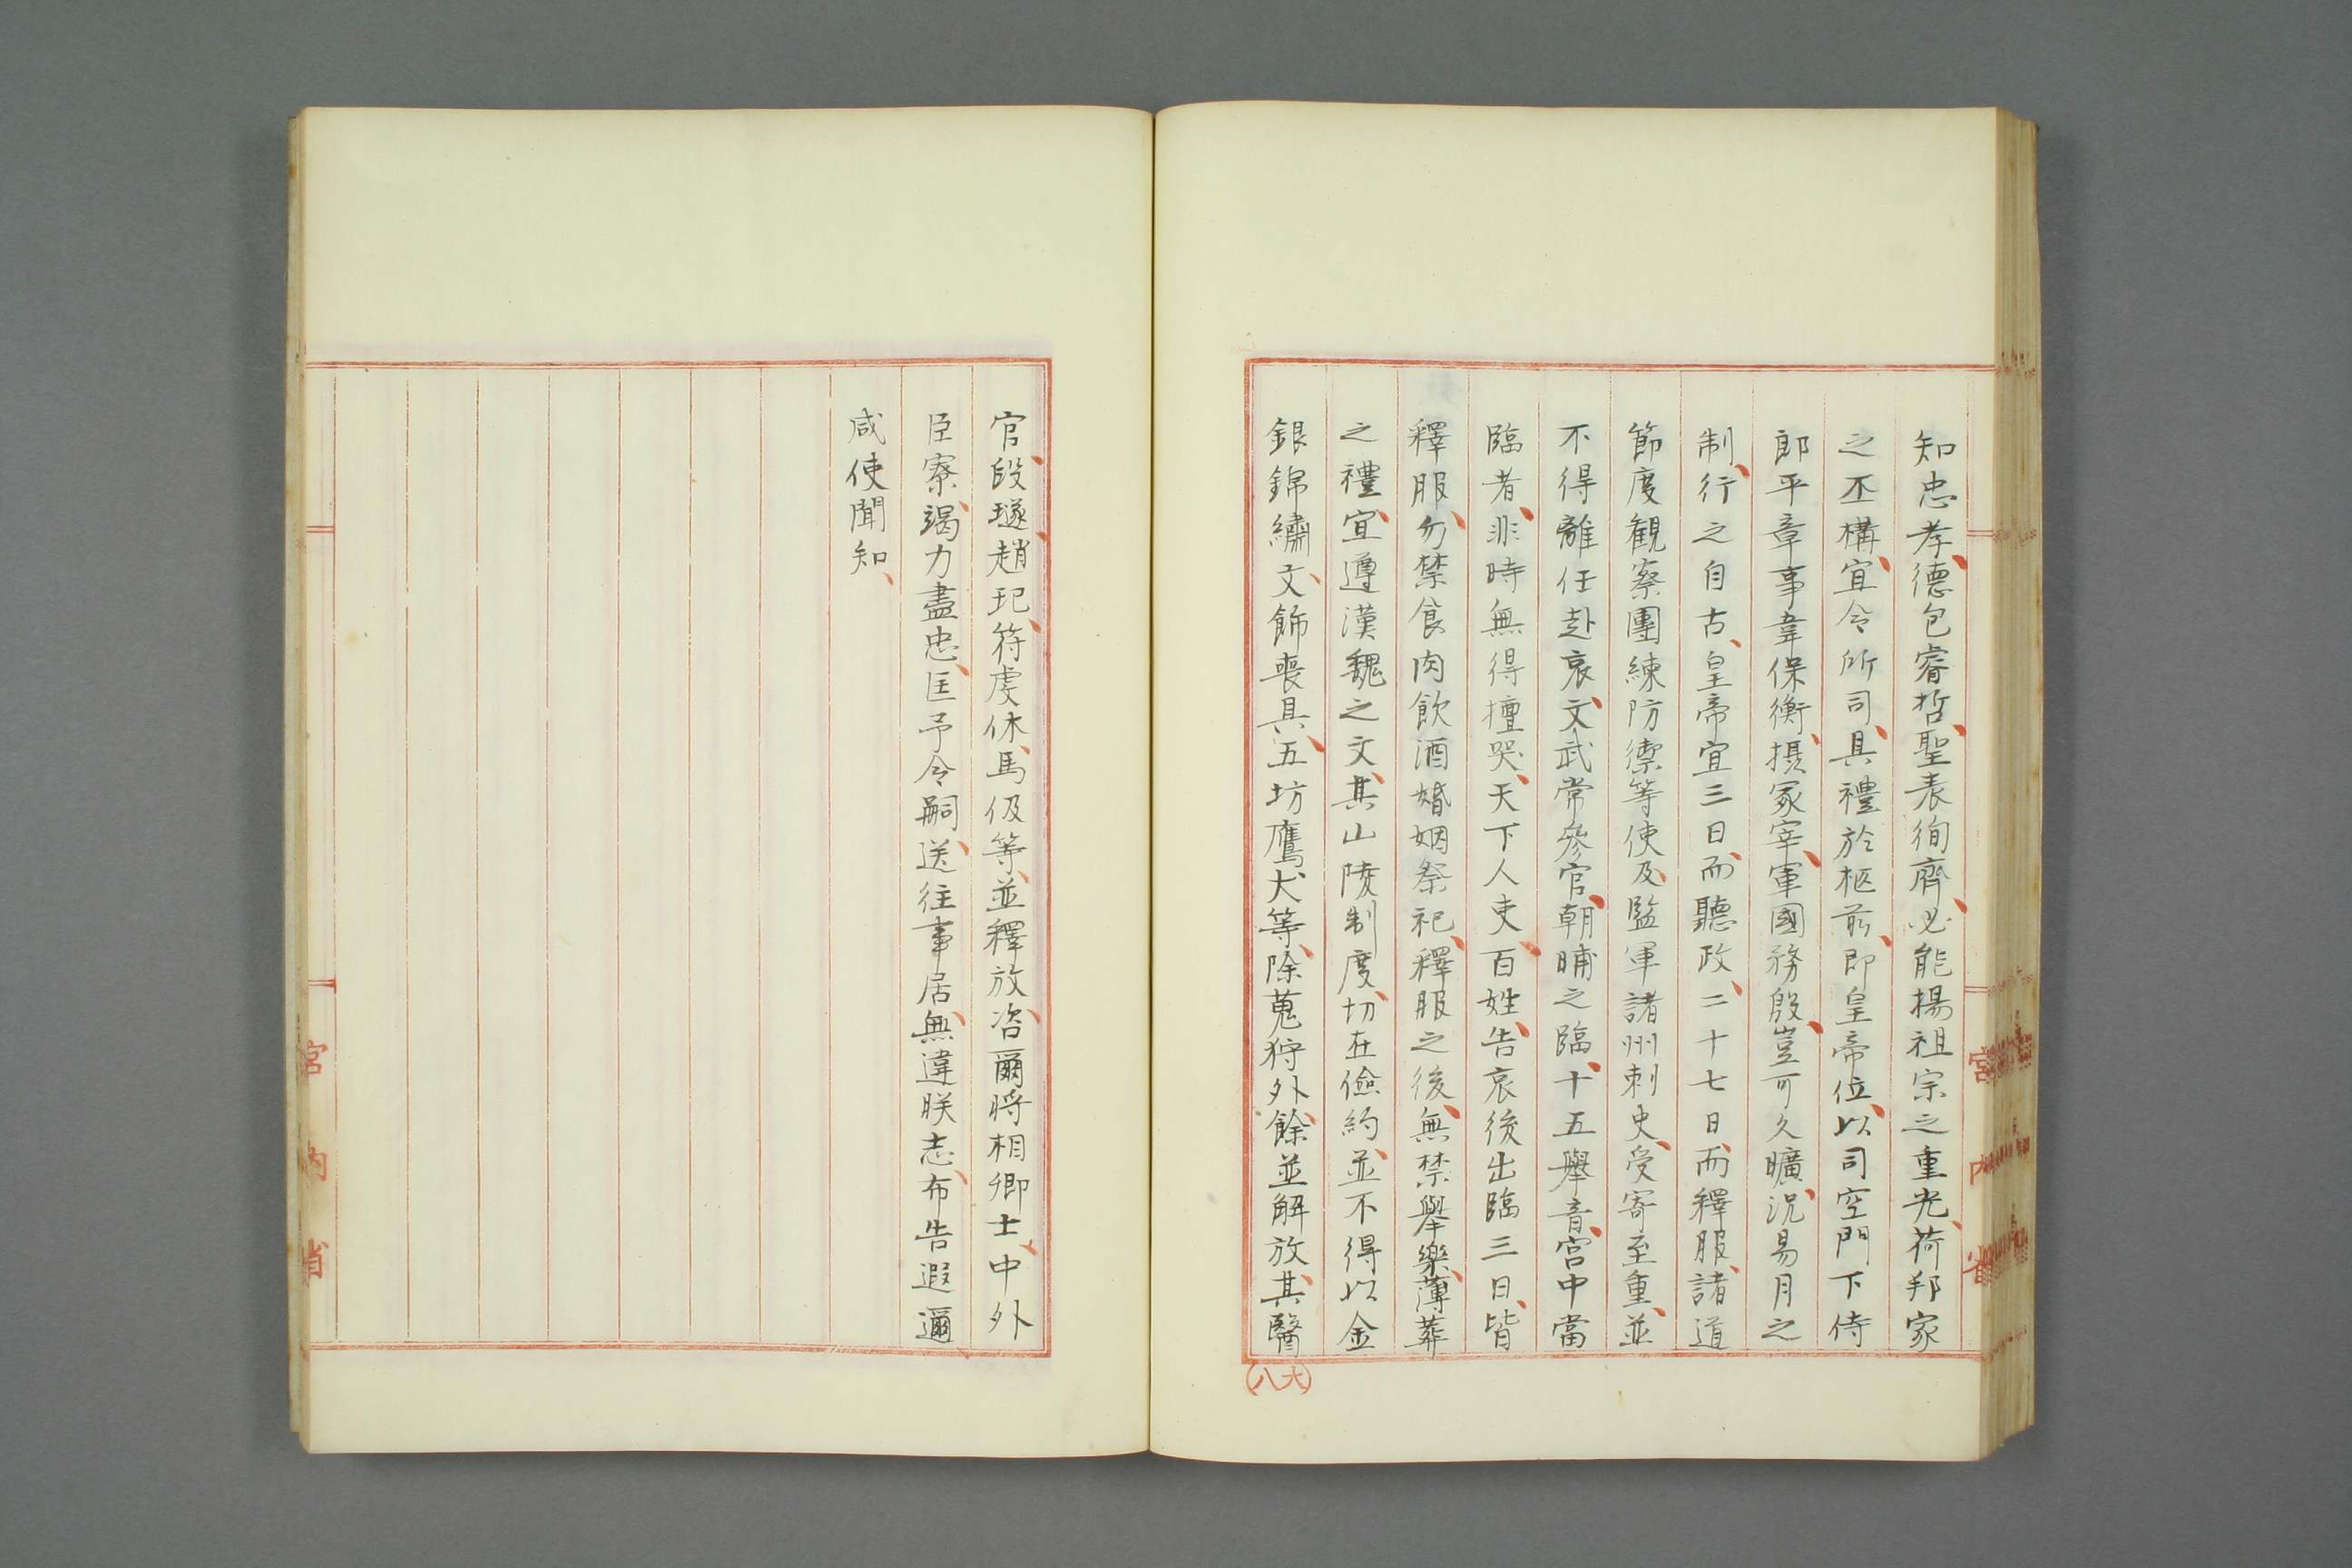 知忠孝、德包睿哲、聖表徇齊、必能揚祖宗之重光、荷邦家
之丕構、宜令所司、具禮於柩前、即皇帝位、以司空門下侍
郎平章事韋保衡、摂冢宰、軍國務殷、豈可久曠、況易月之
制、行之自古、皇帝宜三日、而聽政、二十七日、而釋服、諸道
節度観察團練防禦等使及監軍諸州刺史、受寄至重、並
不得離任赴哀、文武常參官、朝晡之臨、十五舉音、宮中當
臨者、非時無得擅哭、天下人吏、百姓、告哀後出臨三日、皆
釋服、勿禁食肉飲酒婚姻祭祀、釋服之後、無禁舉樂、薄葬
之禮、宜遵漢魏之文、其山陵制度、切在儉約、並不得以金
銀錦繡、文飾喪具、五坊鷹犬等、除蒐狩外、餘並解放、其醫
官、段璲、趙玘、符虔休、馬伋等、並釋放、咨爾將相卿士、中外
臣寮、竭力盡忠、匡予令嗣、送往事居、無違朕志、布告遐邇、
咸使聞知、
(六八)
宮內省
宮內省